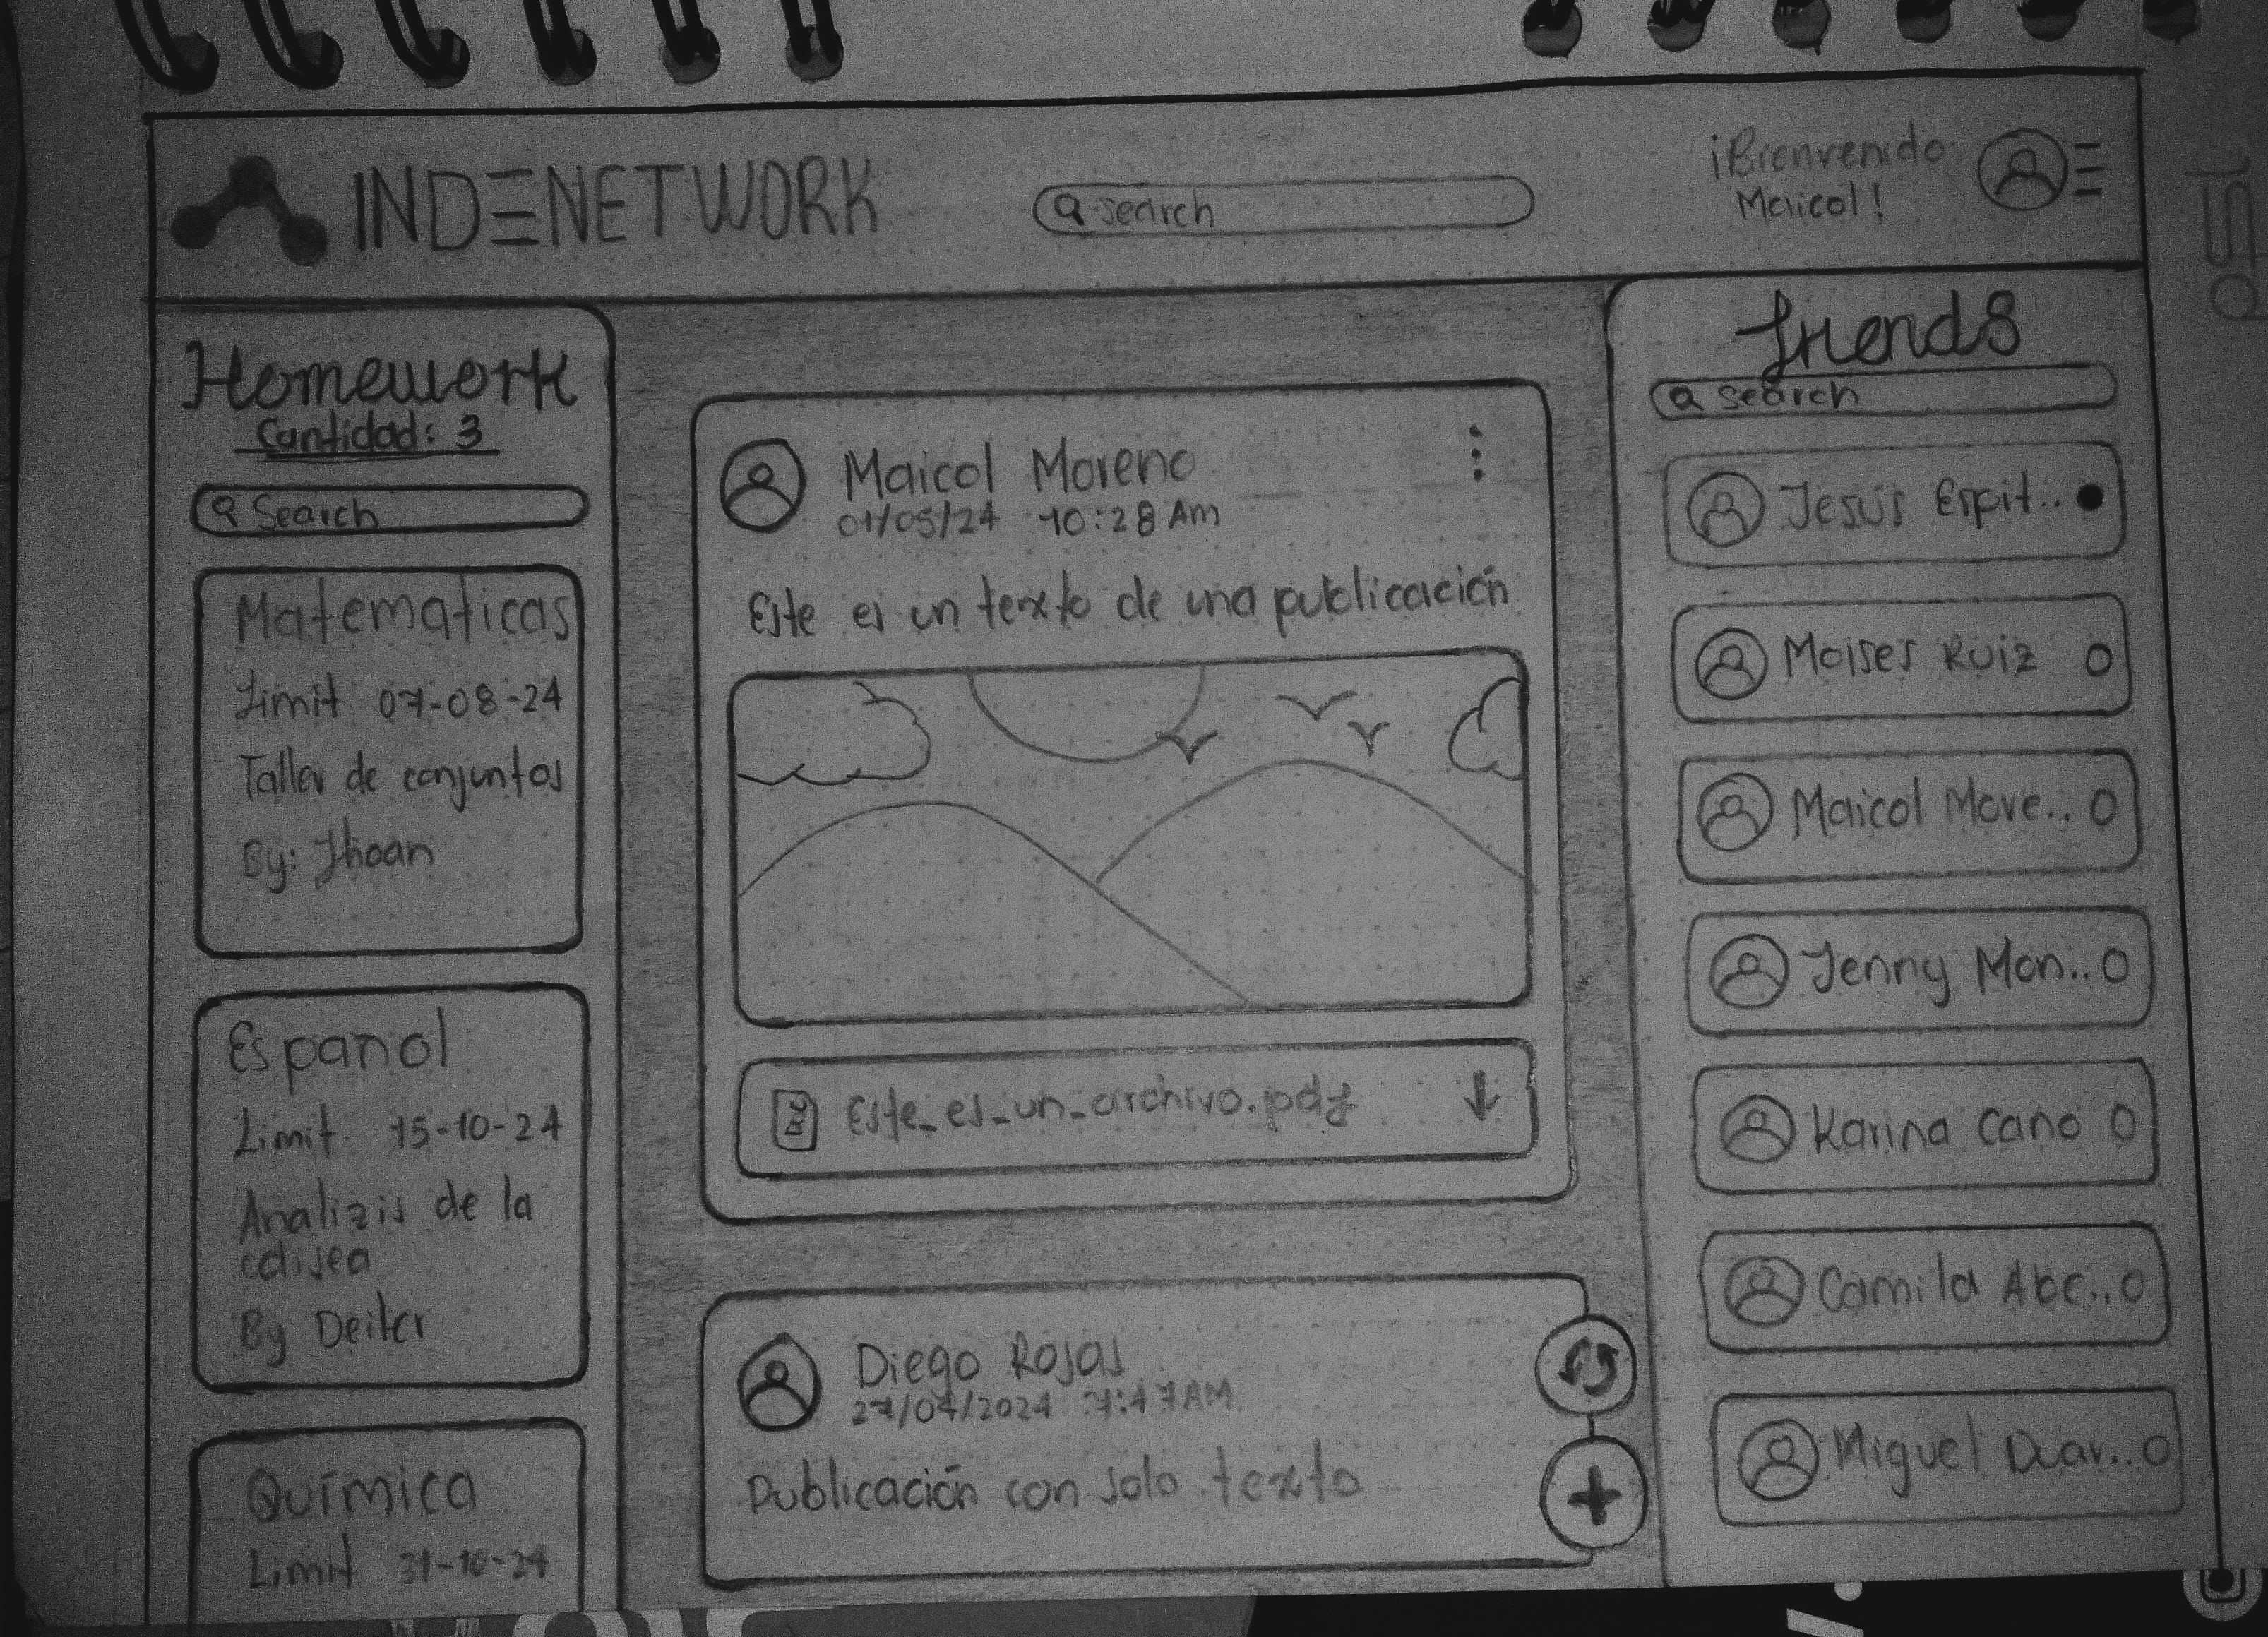 INDENETWORK
search
¡Bienvenido
Maicol!
Homework
Cantidad: 3
Search
Matematicas
Limit 07-08-24
Taller de conjuntos
By: Jhoan
Español
Limit 15-10-24
Analizis de la
odisea
By Deiler
Química
Limit 31-10-24
Maicol Moreno
01/05/24 10:28 Am
Este es un texto de una publicación
Este_es_un_archivo.pdf
Diego Rojas
27/04/2024 7:47 AM
Publicación con solo texto
friends
search
Jesús Espit..
Moises Ruiz
Maicol More..
Jenny Mon..
Karina Cano
Camila Abc..
Miguel Duar..